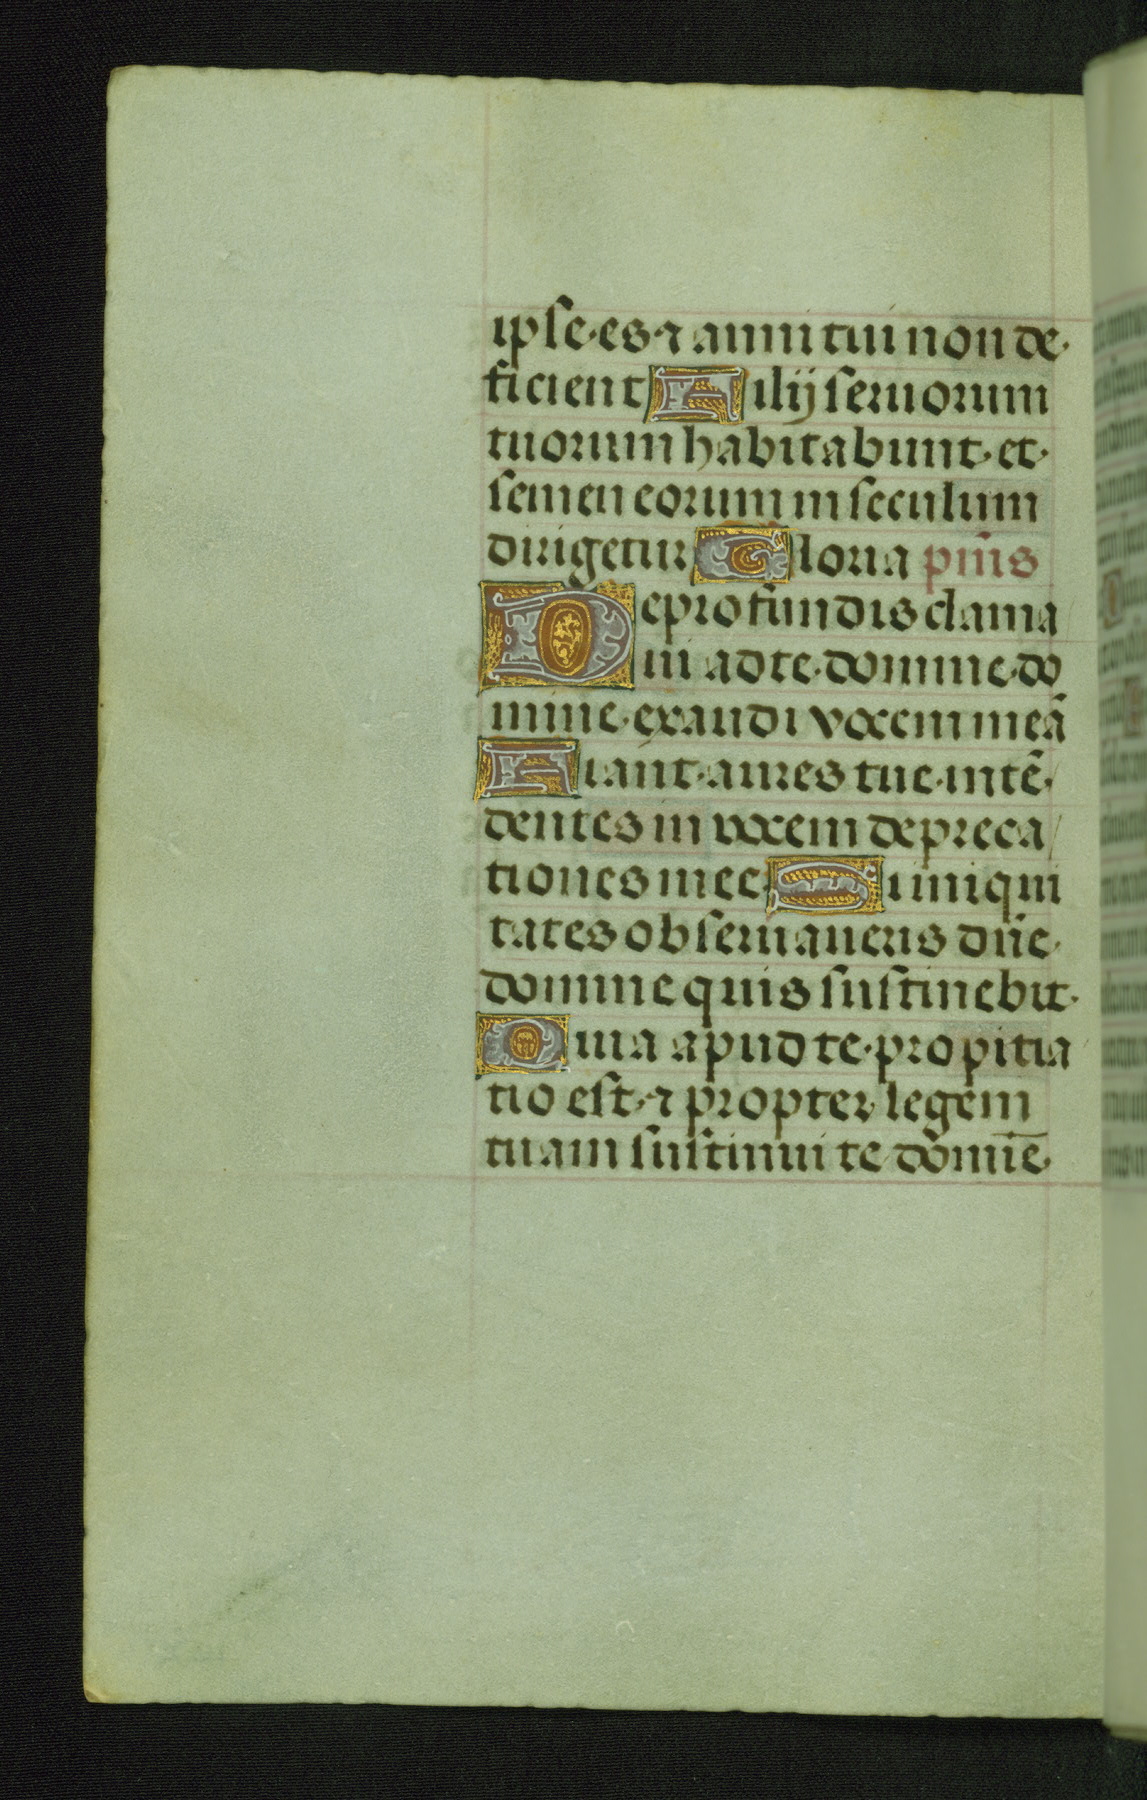 ipse·es·⁊ anni tui non de·
ficient Filij seruorum
tuorum habitabunt· et·
semen eorum in seculum
dirigetur Gloria p̄ſ̄us
De profundis clama
ui ad te·domine·do
mine·exaudi vocem meā
Fiant·aures tue·intē·
dentes in vocem depreca
tiones mee· Si iniqui
tates obseruaueris dn̄e·
domine quis sustinebit·
Quia apud te·propitia
tio est·⁊ propter legem
tuam sustinui te domīe·